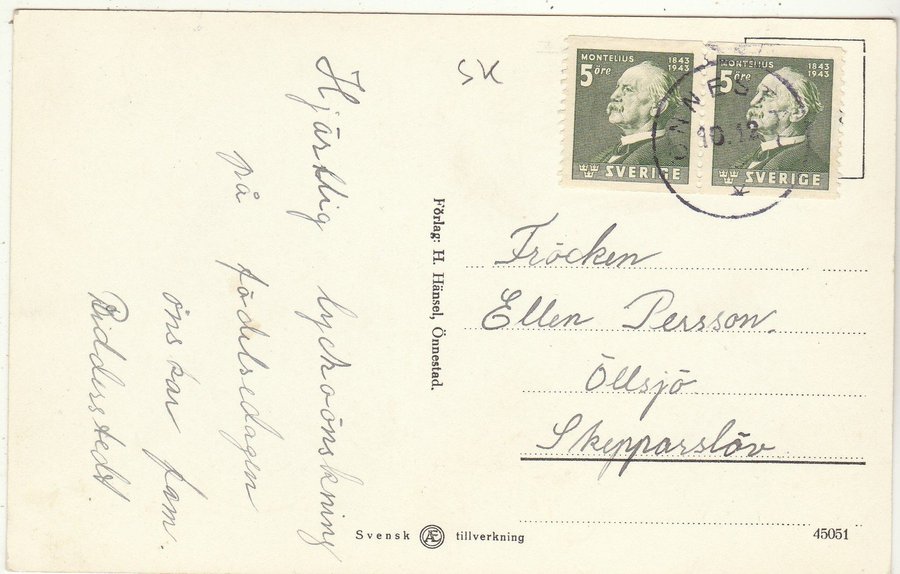 Hjärtlig lyckoönskning
på födelsedagen
önskar fam.
Riddesstedt.
Förlag: H. Hänsel, Önnestad.
MONTELIUS 1843 1943
5 öre
SVERIGE
MONTELIUS 1843 1943
5 öre
SVERIGE
10.12
Fröcken
Ellen Persson.
Öllsjö
Skepparslöv
Svensk AE tillverkning
45051